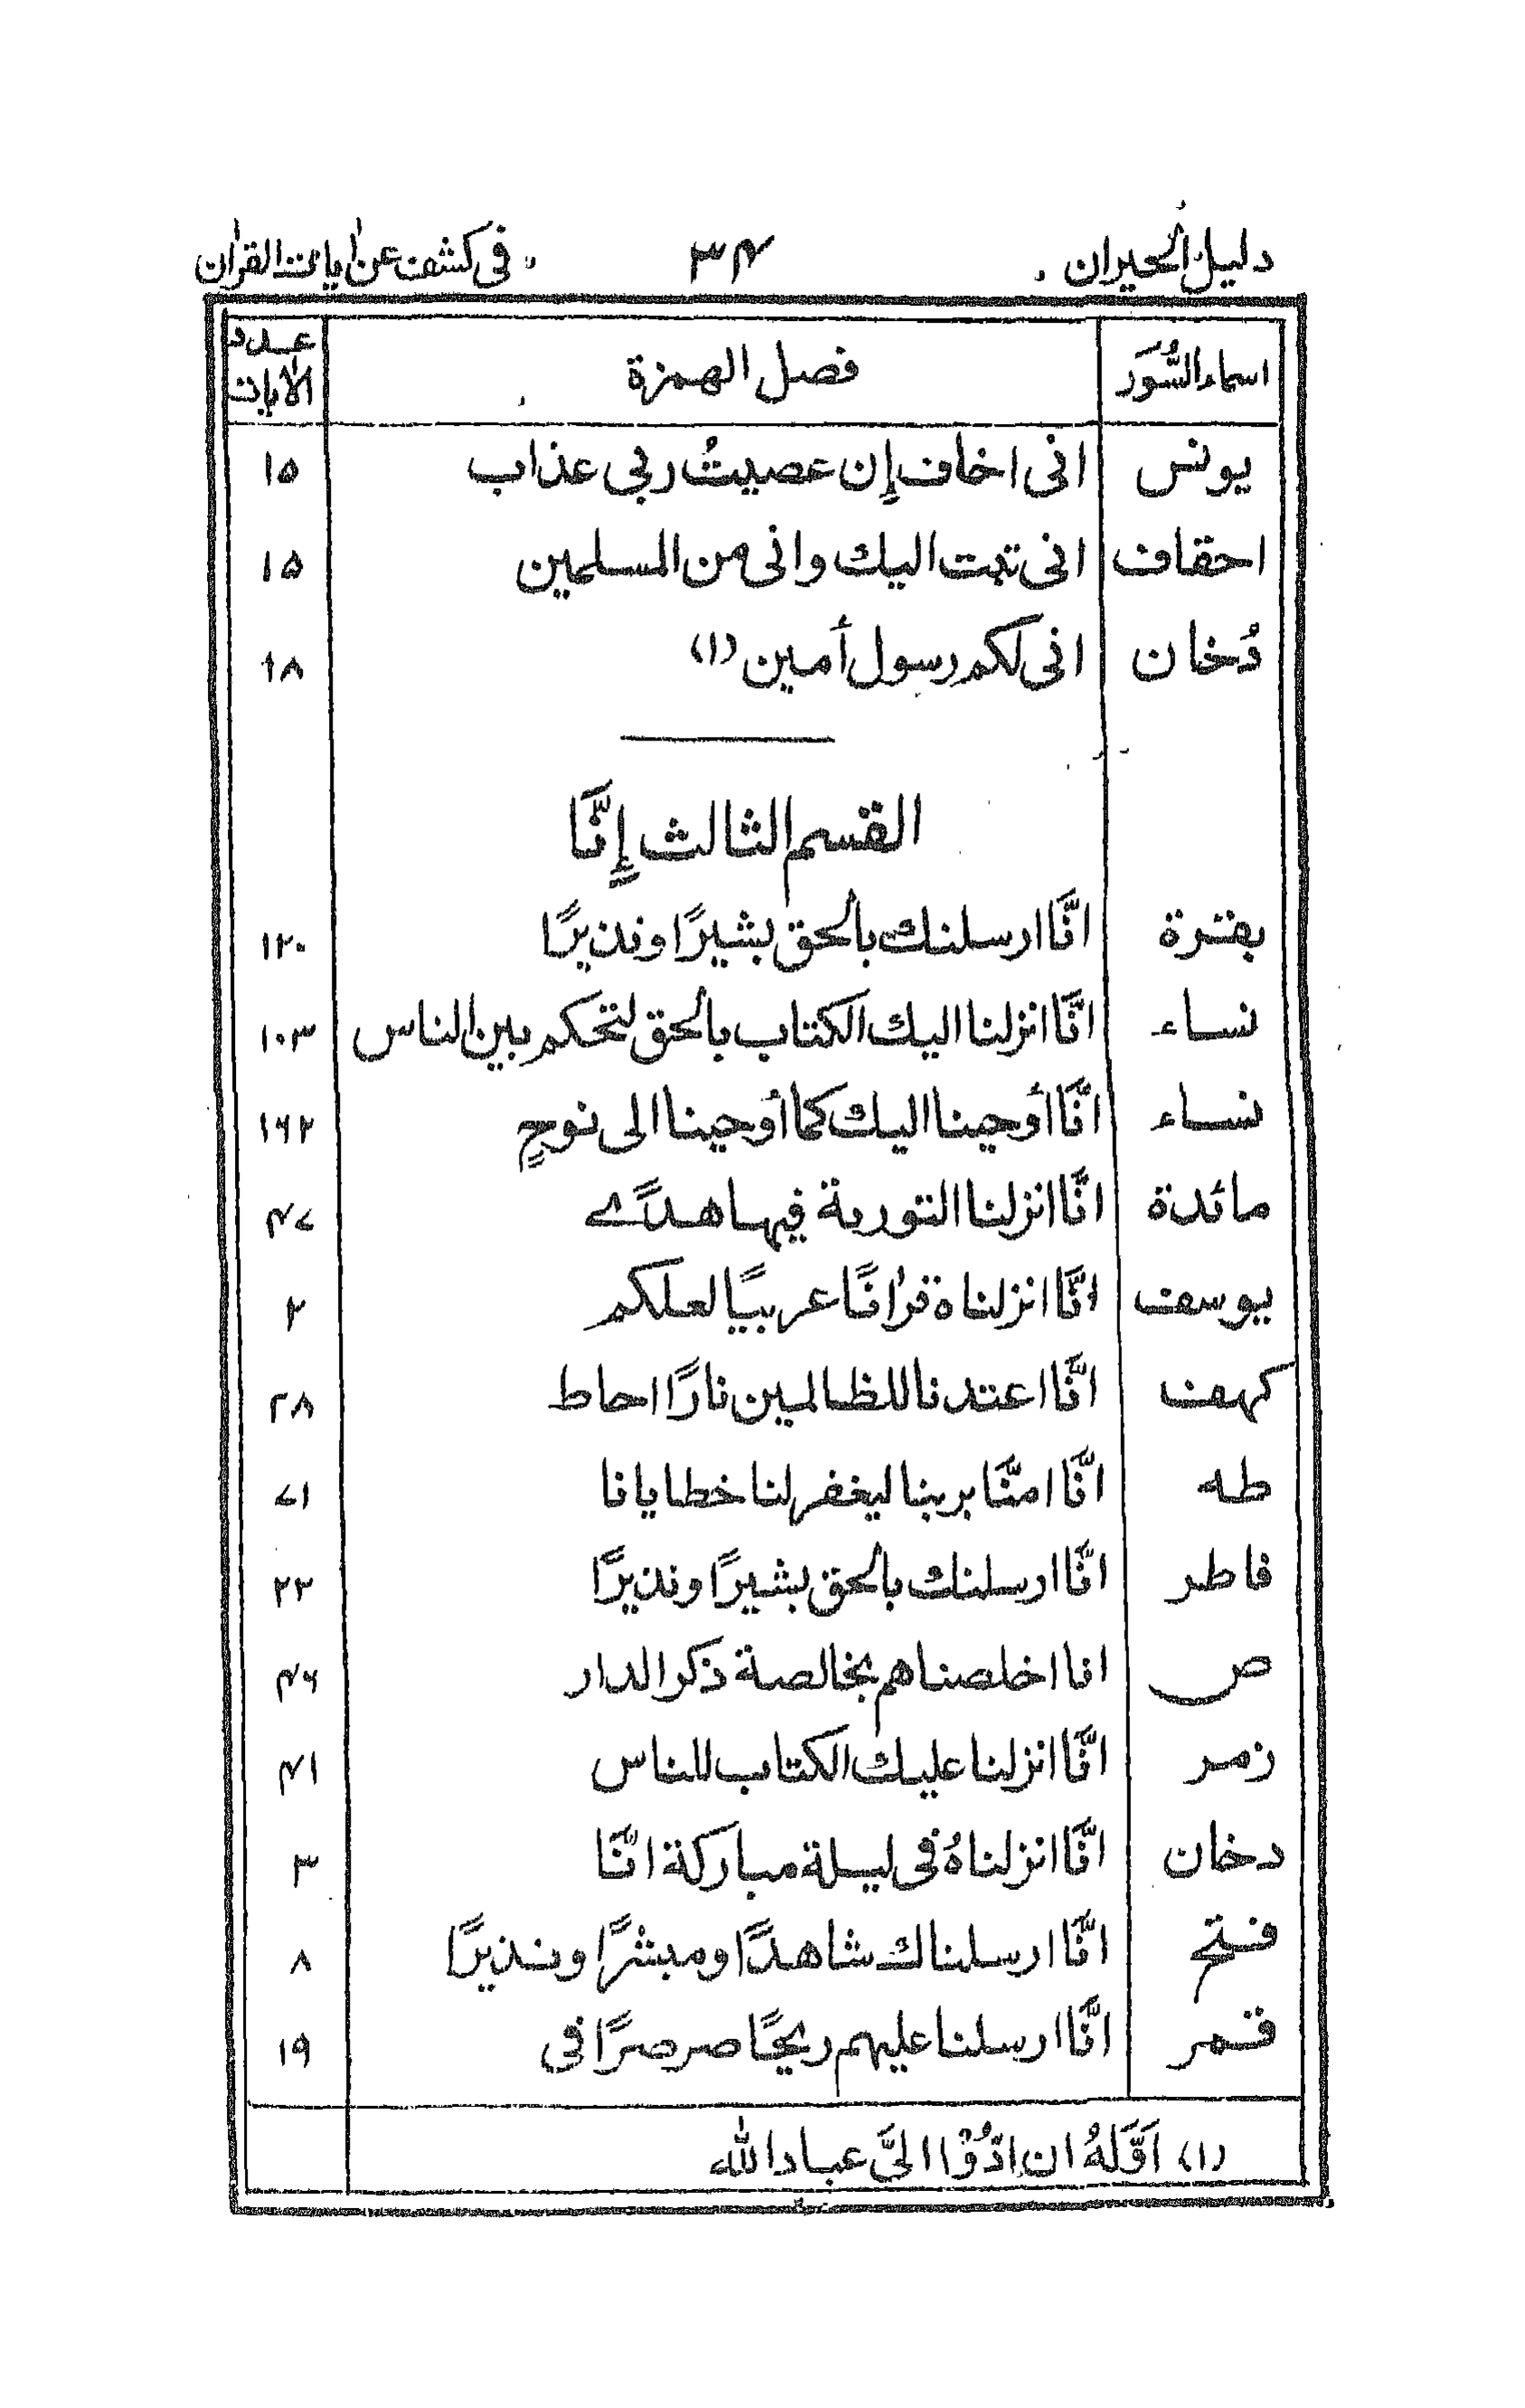 دليل الحيران . ٣٤ . فى كشف عن اٰيات القراٰن
اسماء السُّوَر فصل الهمزة عدد الاٰيات
يونس انى اخاف إن عصيتُ ربى عذاب ١٥
احقاف انى تبت اليك وانى من المسلمين ١٥
دُخان انى لكم رسول أمين (١) ١٨
القسم الثالث إِنَّا
بقرة انَّا ارسلنك بالحق بشيرًا ونذيرًا ١٢٠
نساء انَّا انزلنا اليك الكتاب بالحق لتحكم بين الناس ١٠٣
نساء انَّا أوحينا اليك كما أوحينا الى نوحٍ ١٦٢
مائدة انَّا انزلنا التورىة فيها هدًے ٤٧
يوسف انَّا انزلناه قراٰنًا عربيًا لعلكم ٢
كهف انَّا اعتدنا للظالمين نارًا احاط ٢٨
طه انَّا امنَّا بربنا ليغفر لنا خطايانا ٧١
فاطر انَّا ارسلنك بالحق بشيرًا ونذيرًا ٢٣
ص انا اخلصناهم بخالصة ذكر الدار ٤٦
زمر انَّا انزلنا عليك الكتاب للناس ٤١
دخان انَّا انزلناهُ فى ليلة مباركة انَّا ٣
فتح انَّا ارسلناك شاهدًا ومبشرًا ونذيرًا ٨
قمر انَّا ارسلنا عليهم ريحًا صرصرًا فى ١٩
(١) اَوَّلهُ ان ادّوْا الىَّ عباد الله